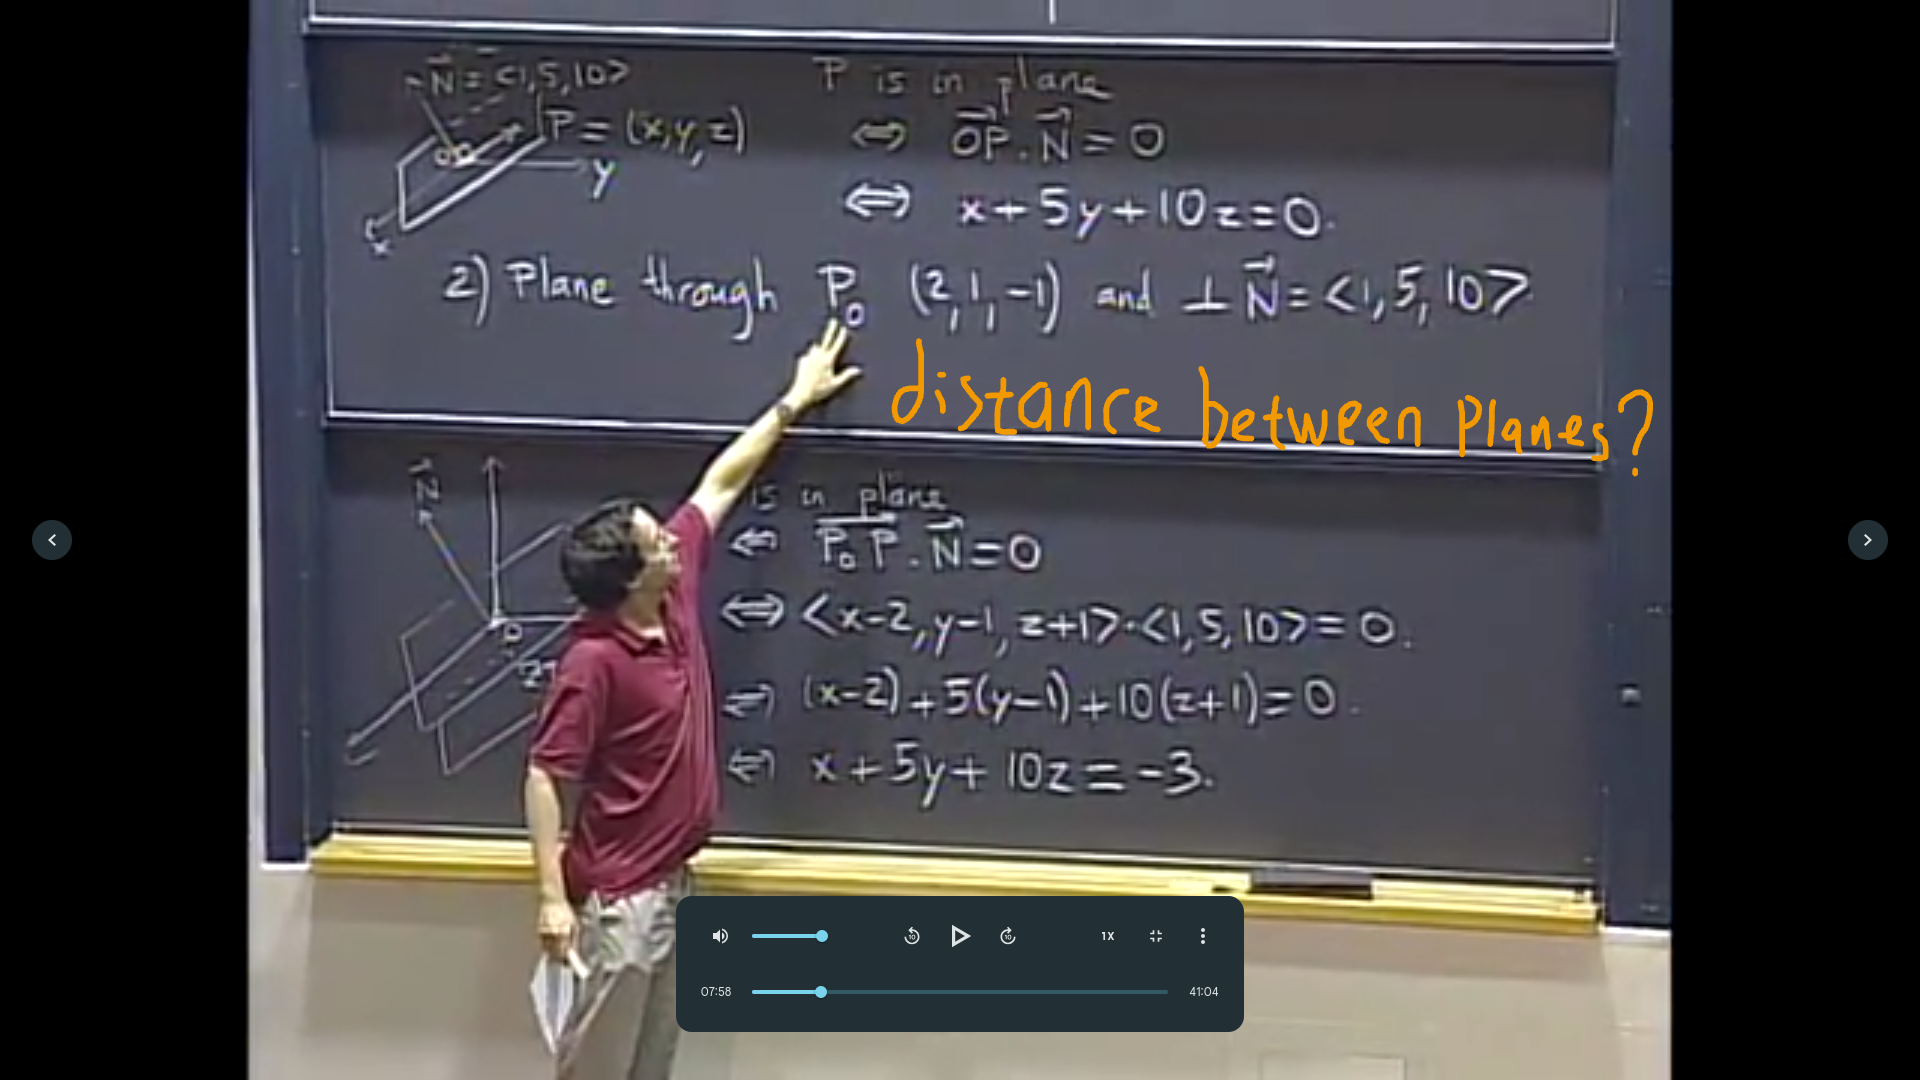 N⃗ = <1,5,10>
P = (x,y,z)
y
x
P is in plane
⇔ OP⃗ . N⃗ = 0
⇔ x+5y+10z=0.
2) Plane through P₀ (2,1,-1) and ⊥ N⃗ = <1,5,10>
distance between planes?
N⃗
is in plane
⇔ P₀P⃗ . N⃗ = 0
⇔ <x-2,y-1,z+1>.<1,5,10> = 0.
⇔ (x-2)+5(y-1)+10(z+1)=0.
⇔ x+5y+10z=-3.
1X
07:58
41:04